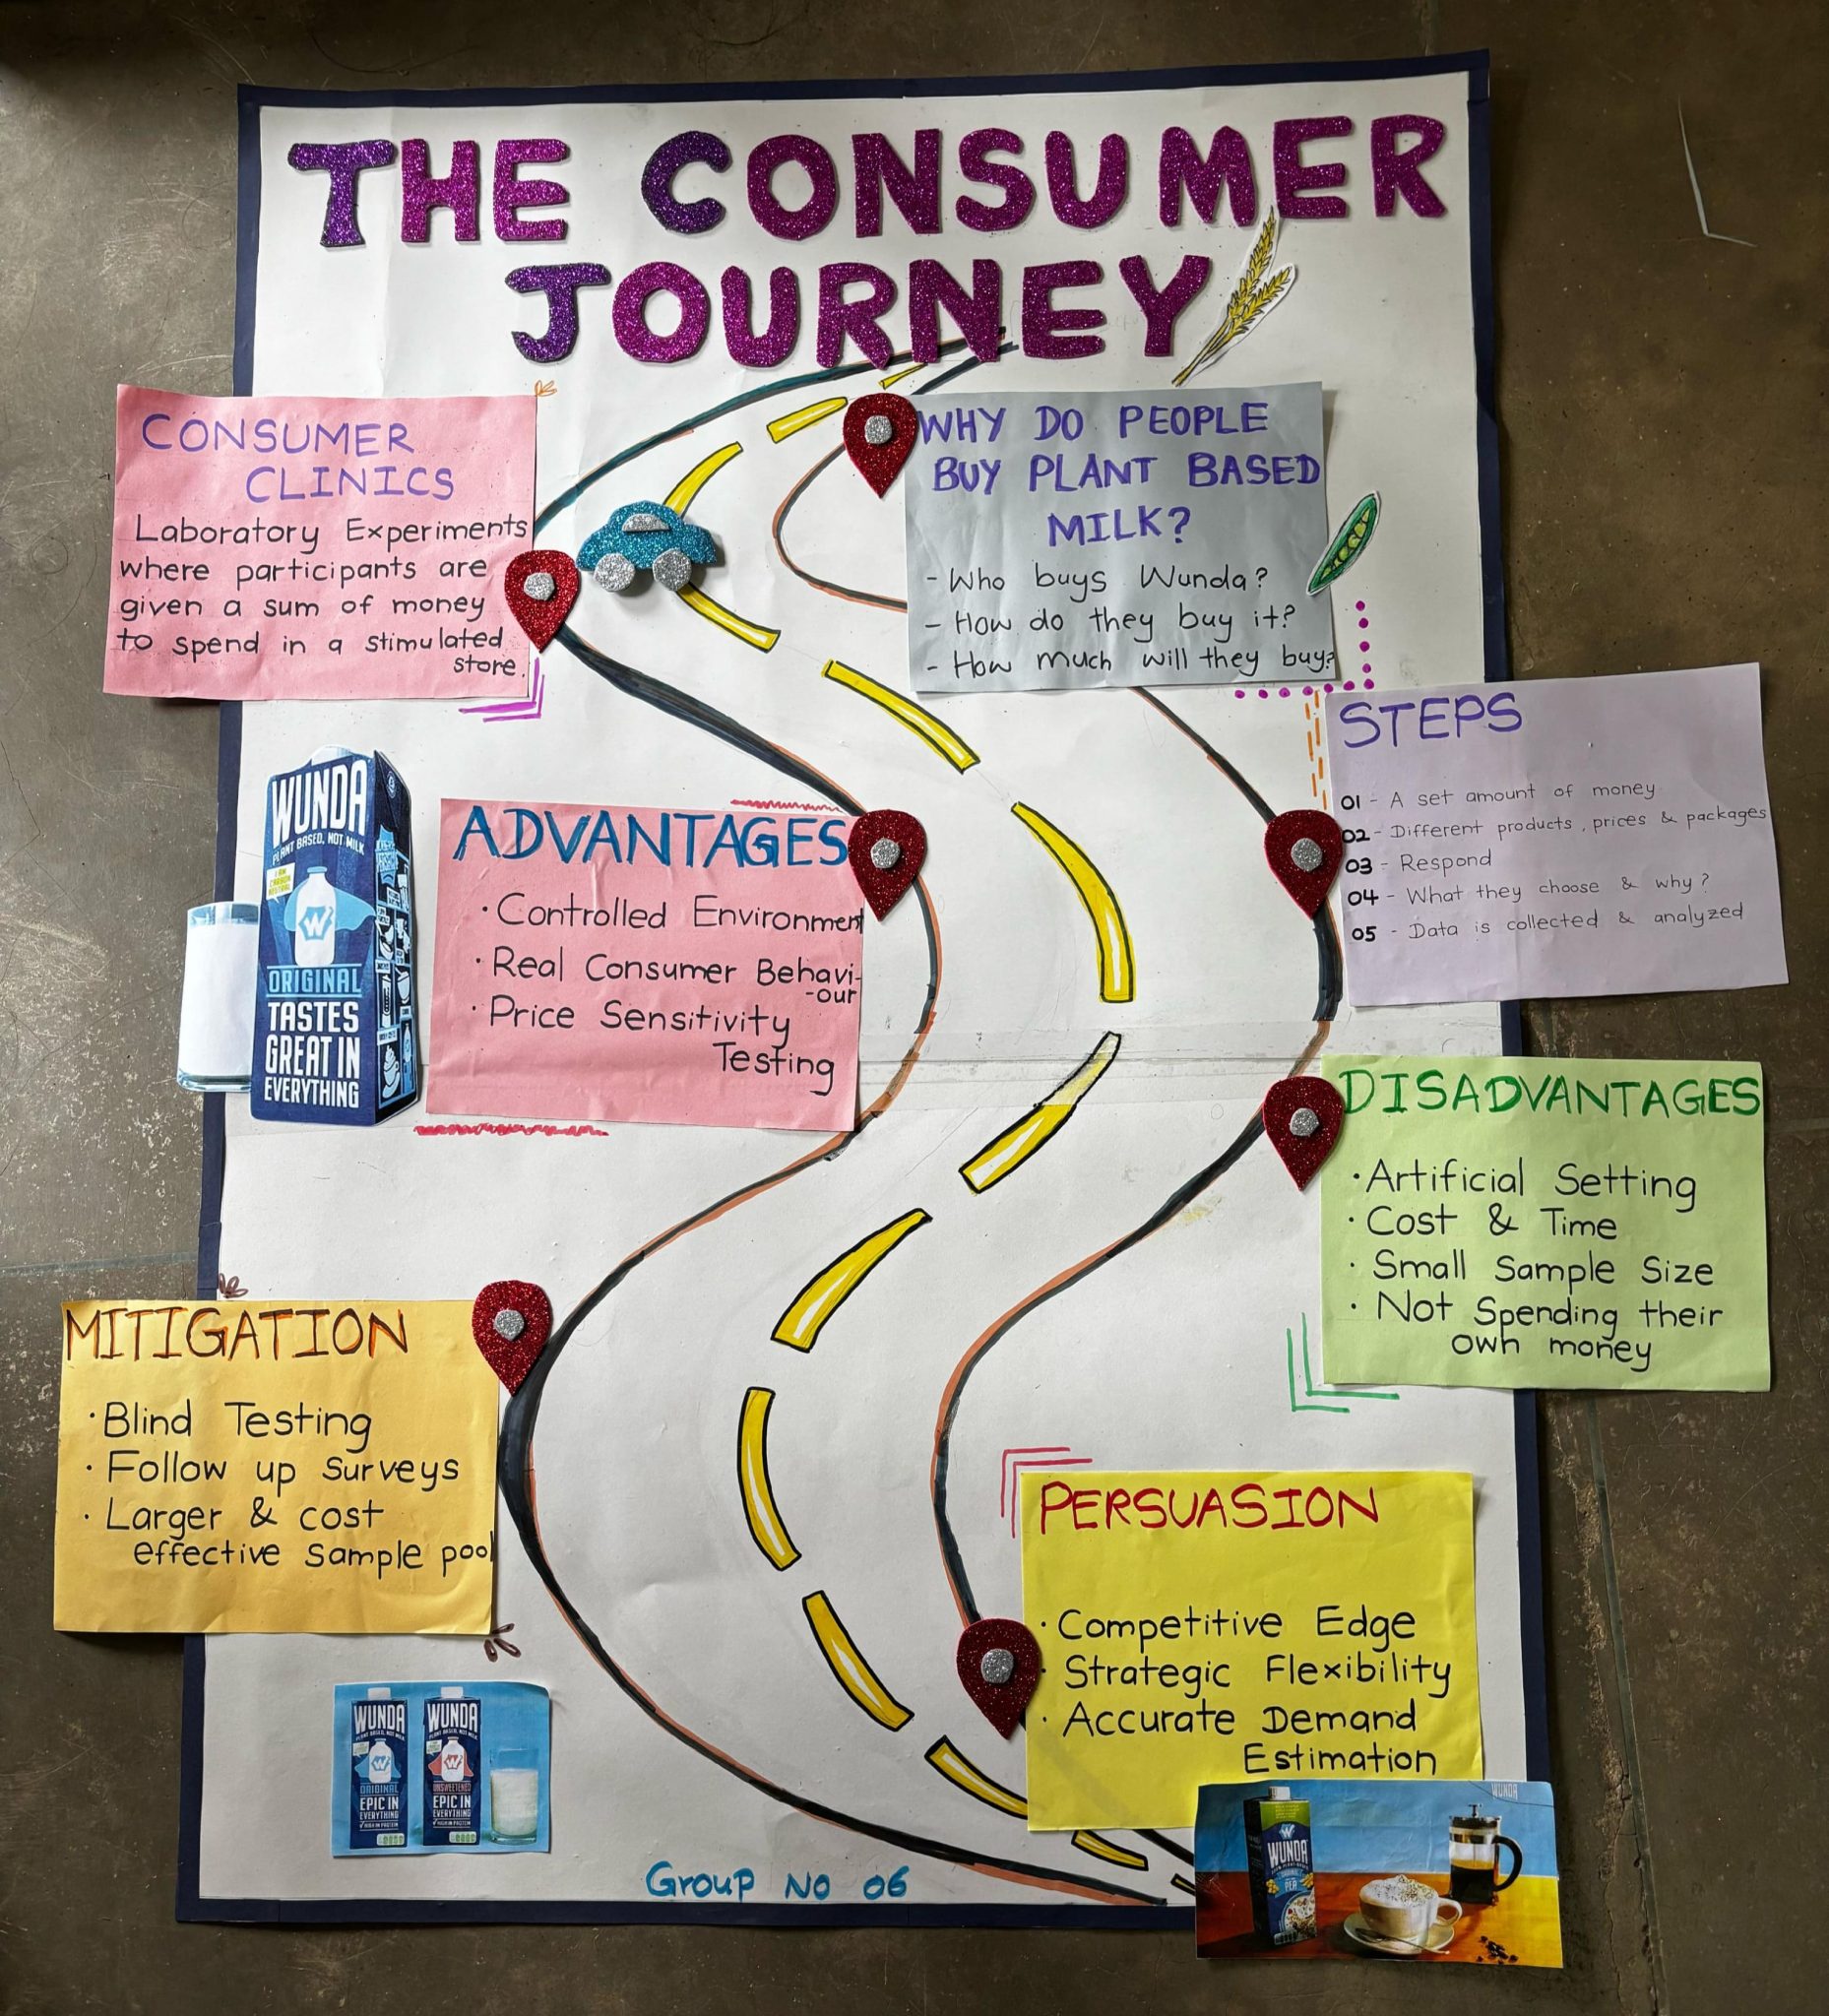 THE CONSUMER
JOURNEY
CONSUMER
CLINICS
Laboratory Experiments
where participants are
given a sum of money
to spend in a stimulated
store.
WHY DO PEOPLE
BUY PLANT BASED
MILK?
- Who buys Wunda?
- How do they buy it?
- How much will they buy?
STEPS
01 - A set amount of money
02 - Different products, prices & packages
03 - Respond
04 - What they choose & why?
05 - Data is collected & analyzed
WUNDA
PLANT BASED, NOT MILK
I AM
CARBON
NEUTRAL
W
ORIGINAL
TASTES
GREAT IN
EVERYTHING
ADVANTAGES
· Controlled Environment
· Real Consumer Behavi-
-our
· Price Sensitivity
Testing
DISADVANTAGES
· Artificial Setting
· Cost & Time
· Small Sample Size
· Not Spending their
own money
MITIGATION
· Blind Testing
· Follow up surveys
· Larger & cost
effective sample pool
PERSUASION
· Competitive Edge
· Strategic Flexibility
· Accurate Demand
Estimation
WUNDA
PLANT BASED, NOT MILK
W
ORIGINAL
EPIC IN
EVERYTHING
HIGH IN PROTEIN
WUNDA
PLANT BASED, NOT MILK
W
UNSWEETENED
EPIC IN
EVERYTHING
HIGH IN PROTEIN
Group No 06
WUNDA
W
WUNDA